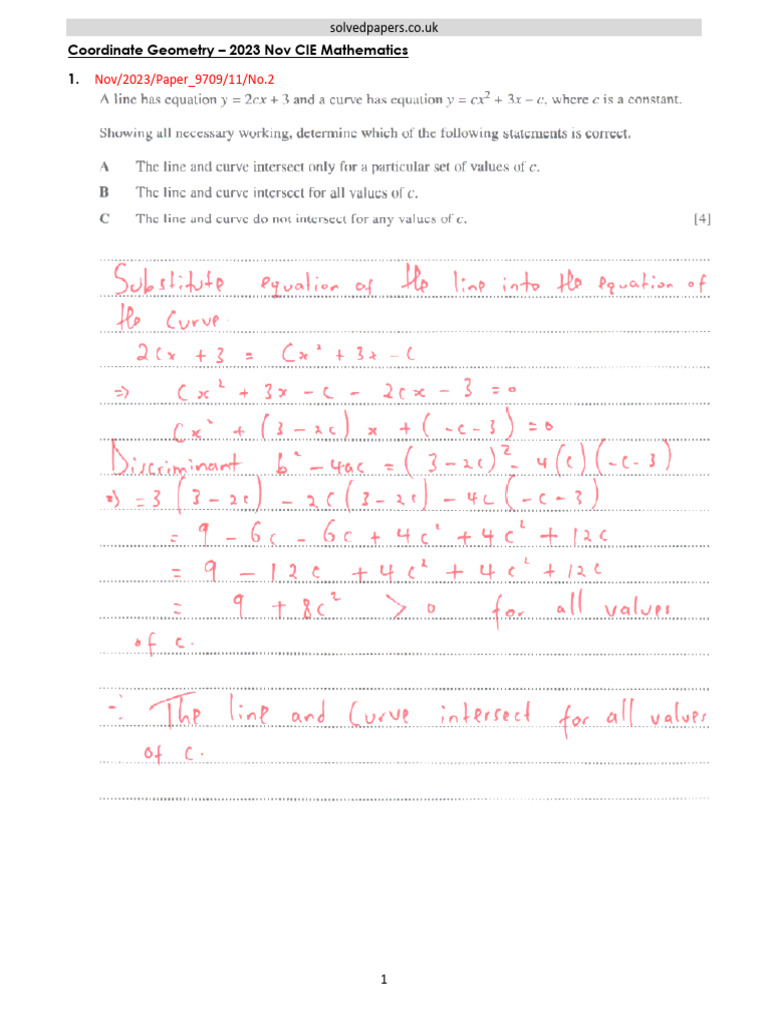 solvedpapers.co.uk
Coordinate Geometry – 2023 Nov CIE Mathematics
1. Nov/2023/Paper_9709/11/No.2
A line has equation y = 2cx + 3 and a curve has equation y = cx² + 3x − c, where c is a constant.
Showing all necessary working, determine which of the following statements is correct.
A The line and curve intersect only for a particular set of values of c.
B The line and curve intersect for all values of c.
C The line and curve do not intersect for any values of c. [4]
Substitute equation of the line into the equation of
the curve.
2cx + 3 = cx² + 3x − c
⇒ cx² + 3x − c − 2cx − 3 = 0
cx² + (3 − 2c) x + (−c − 3) = 0
Discriminant b² − 4ac = (3 − 2c)² − 4(c)(−c − 3)
⇒ = 3(3 − 2c) − 2c(3 − 2c) − 4c(−c − 3)
= 9 − 6c − 6c + 4c² + 4c² + 12c
= 9 − 12c + 4c² + 4c² + 12c
= 9 + 8c² > 0 for all values
of c.
∴ The line and curve intersect for all values
of c.
1